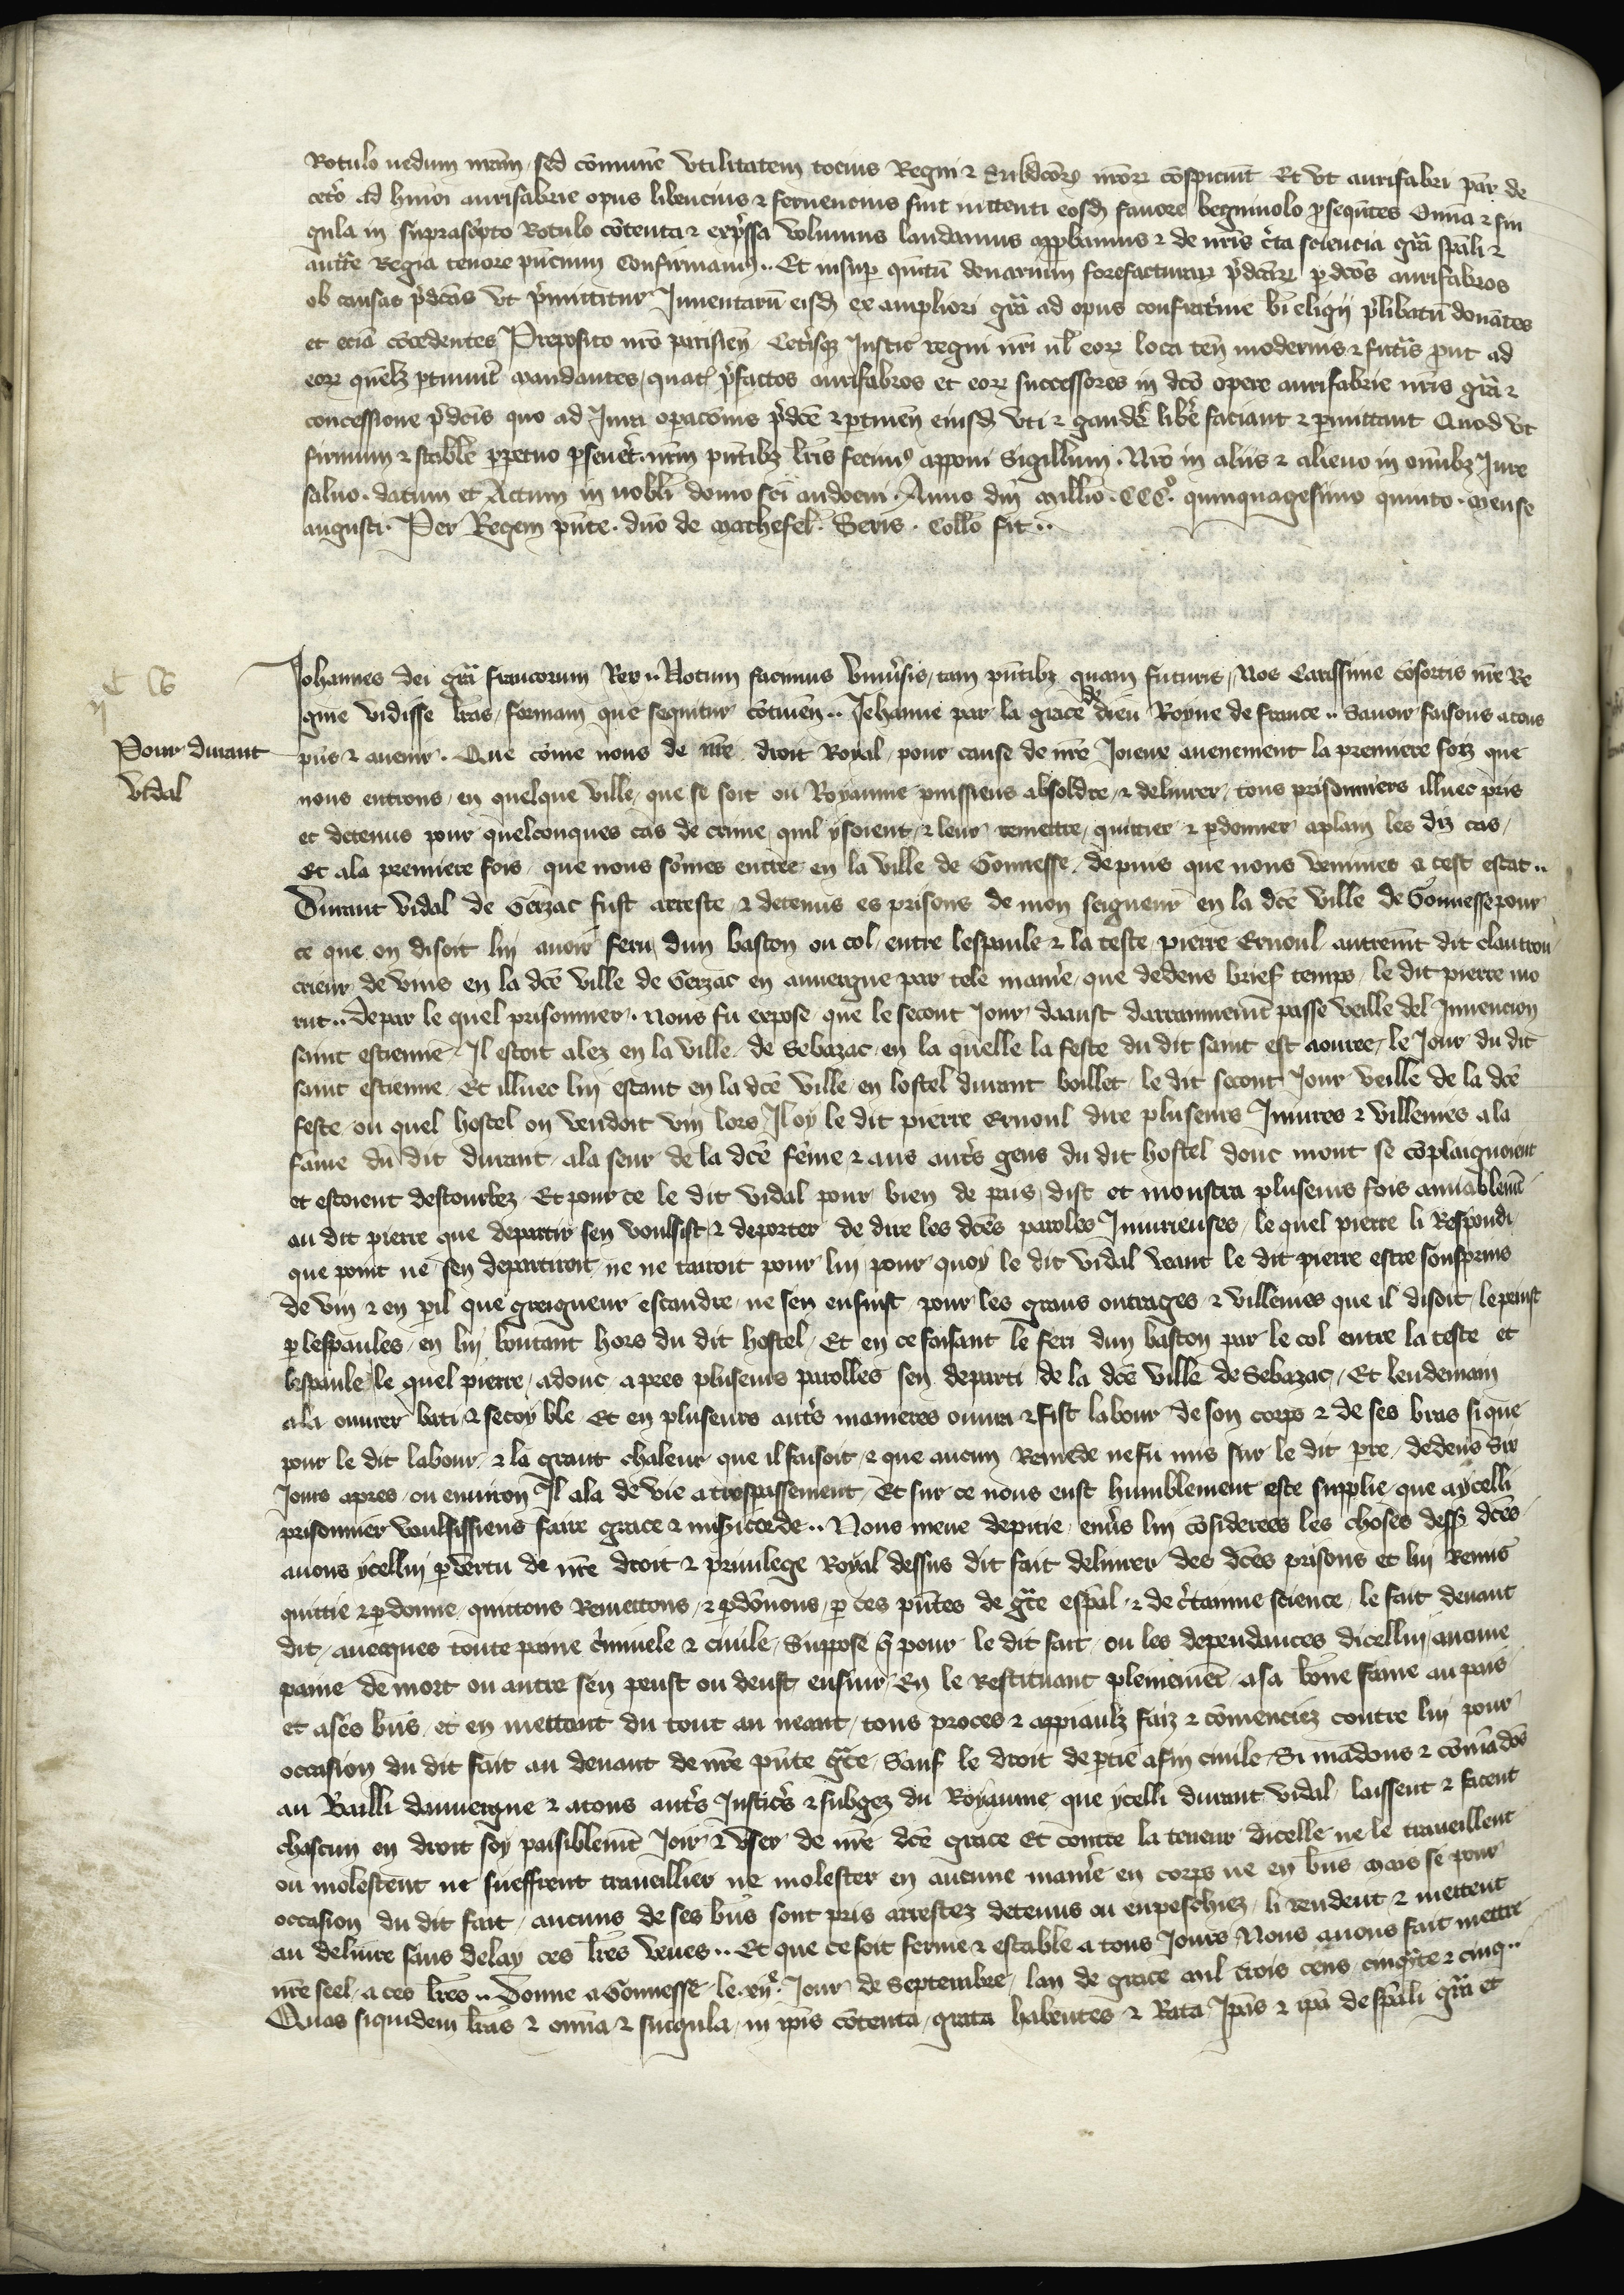 Rotulo nedum nram sed comune vtilitatem tocius Regni & Subdcor nror conspiciunt Et vt aurifabri par de
cero ad hmoi aurifabrie opus libencius & feruencius sint intenti eosd fauore begniuolo psequtes Omnia & sin
gula in suprascpto Rotulo cotenta & expssa volumus laudamus appbamus & de nris cta sciencia gra spali &
autte Regia tenore pncium Confirmam9 .. Et insup quintu denarium forefacturar pdcar p dcos aurifabros
ob causas pdcas vt pmittitur Inuentaru eisd ex ampliori gra ad opus confratrie bi eligij plibatu donates
et ecia cocedentes Preposito nro parisien Ceterisq Justic regni nri ul eor loca ten modernis & futis put ad
eor quelz ptinuit mandantes quat pfactos aurifabros et eor successores in dco opere aurifabrie nris gra &
concessione pdcis quo ad Jura opacois pdce & ptinen eiusd vti & gaudere libe faciant & pmittant Quod vt
firmum & stabile ppetuo pseueret nrm pntibz lris fecim9 apponi Sigillum . Nro in aliis & alieno in omibz Jure
saluo . datum et Actum in nobili domo sci audoeni . Anno dni millio . CCCo . quinquagesimo quinto . mense
augusti . Per Regem pnte . dno de mathefel . Seris . Collo fit ..
Johannes dei gra francorum Rex .. Notum facimus vniusis tam pntibz quam futuris Nos Carissime cosortis nre Re
gine vidisse lras formam que sequitur cotinen .. Jehanne par la grace de dieu Royne de france .. Sauoir faisons a tous
pns & auenir . Que come nous de nre droit Royal pour cause de nre Joieux auenement la premiere foiz que
Pour durant
vidal
nous entrons en quelque ville que se soit ou Royaume puissiens absoldre & deliurer tous prisonniers illuec pris
et detenus pour quelconques cas de crime quil y soient & leur remettre quitter & pdonner aplain les diz cas
Et ala premiere fois que nous somes entree en la ville de Gonnesse depuis que nous venimes a cest estat ..
Durant vidal de Gerzac fust arreste & detenus es prisons de mon seigneur en la dce ville de Gonnesse pour
ce que on disoit lui auoir feru dun baston ou col entre lespaule & la teste pierre Ernoul autremt dit clautrou
crieur de vins en la dce ville de Gerzac en auuergne par tele manie que dedens brief temps le dit pierre mo
rut .. Depar le quel prisonnier . nous fu expose que le secont Jour daoust darrainnemt passe veille del Inuencion
saint estienne Il estoit alez en la ville de Sebazac en la quelle la feste du dit saint est aouree le Jour du dit
saint estienne Et illuec lui estant en la dce ville en lostel durant boillet le dit secont Jour veille de la dce
feste ou quel hostel on vendoit vin lors Il oy le dit pierre Ernoul dire pluseurs Iniures & villenies ala
fame du dit durant ala seur de la dce feme & aus auts gens du dit hostel donc mont se coplaignoient
et estoient destourbez Et pour ce le dit vidal pour bien de pais dist et monstra pluseurs fois amiablemt
au dit pierre que departir sen voulsist & deporter de dire les dces paroles Iniurieuses le quel pierre li Respondi
que point ne sen departiroit ne ne tairoit pour lui pour quoy le dit vidal veant le dit pierre estre souspris
de vin & en pil que greigneur escandre ne sen ensuist pour les grans outrages & villenies que il disoit le prinst
p lespaules en lui boutant hors du dit hostel Et en ce faisant le feri dun baston par le col entre la teste et
lespaule le quel pierre adonc apres pluseurs parolles sen departi de la dce ville de Sebazac Et lendemain
ala ouurer bati & secoy ble Et en pluseurs auts manieres ouura & fist labour de son corps & de ses bras si que
pour le dit labour & la grant chaleur que il faisoit & que aucun Remede ne fu mis sur le dit pre dedens Six
Jours apres ou enuiron Il ala de vie a trespassement Et sur ce nous eust humblement este supplie que a ycelli
prisonnier voulsissiens faire grace & misicorde .. Nous meue de pitie enuers lui cosiderees les choses dess dces
auons ycellui p vertu de nre droit & priuilege Royal dessus dit fait deliurer des dces prisons et lui Remis
quittie & pdonne quittons Remettons & pdonnons p ces pntes de gce espal & de ctainne science le fait deuant
dit auecques toute paine criminele & ciuile Suppose q pour le dit fait ou les dependances dicellui aucune
paine de mort ou autre sen peust ou deust ensuir En le Restituant pleinemet a sa bone fame au pais
et a ses biens et en mettant du tout au neant tous proces & appiaulz faiz & comenciez contre lui pour
occasion du dit fait au deuant de nre pnte gce Sauf le droit de ptie afin ciuile Si madons & comados
au Bailli dauuergne & a tous auts Justics & subgez du Royaume que ycelli durant vidal laissent & facent
chascun en droit soy paisiblemt Joir & vser de nre dce grace Et contre la teneur dicelle ne le traueillent
ou molestent ne sueffrent traueillier ne molester en aucune manie en corps ne en biens mais se pour
occasion du dit fait aucuns de ses biens sont pris arrestez detenus ou enpeschiez li rendent & mettent
au deliure sans delay ces lres veues .. Et que ce soit ferme & estable a tous Jours Nous auons fait mettre
nre seel a ces lres .. Donne a Gonnesse le Jour de Septembre lan de grace mil trois cens cinqte & cinq ..
Quas siquidem lras & omia & singula in ipis cotenta grata habentes & Rata Ipas & ipa de spali gra et